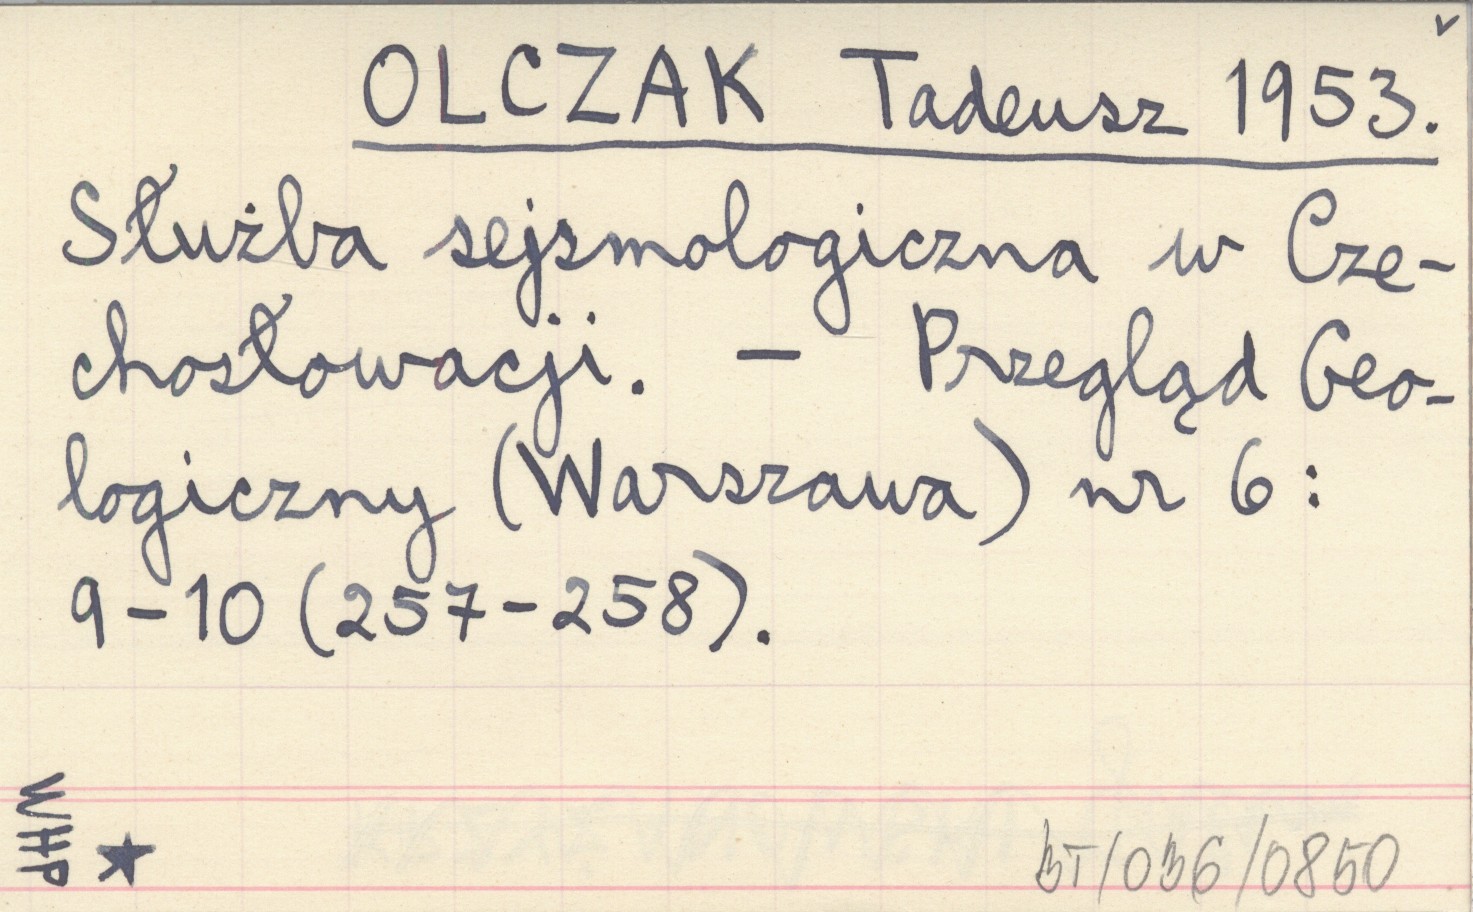 OLCZAK Tadeusz 1953.
Służba sejsmologiczna w Cze-
chosłowacji. — Przegląd Geo-
logiczny (Warszawa) nr 6:
9-10 (257-258).
WHP
BT/036/0850